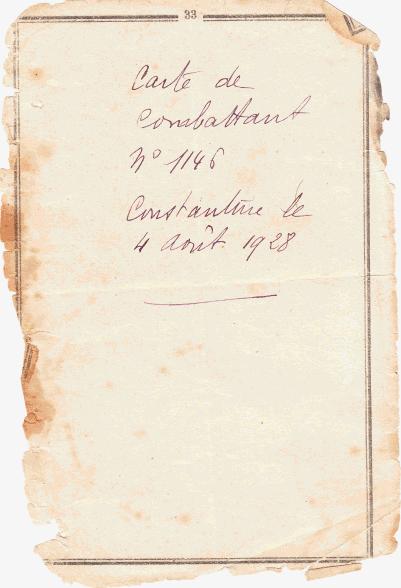 33
Carte de
Combattant
N° 1146
Constantine le
4 Août 1928